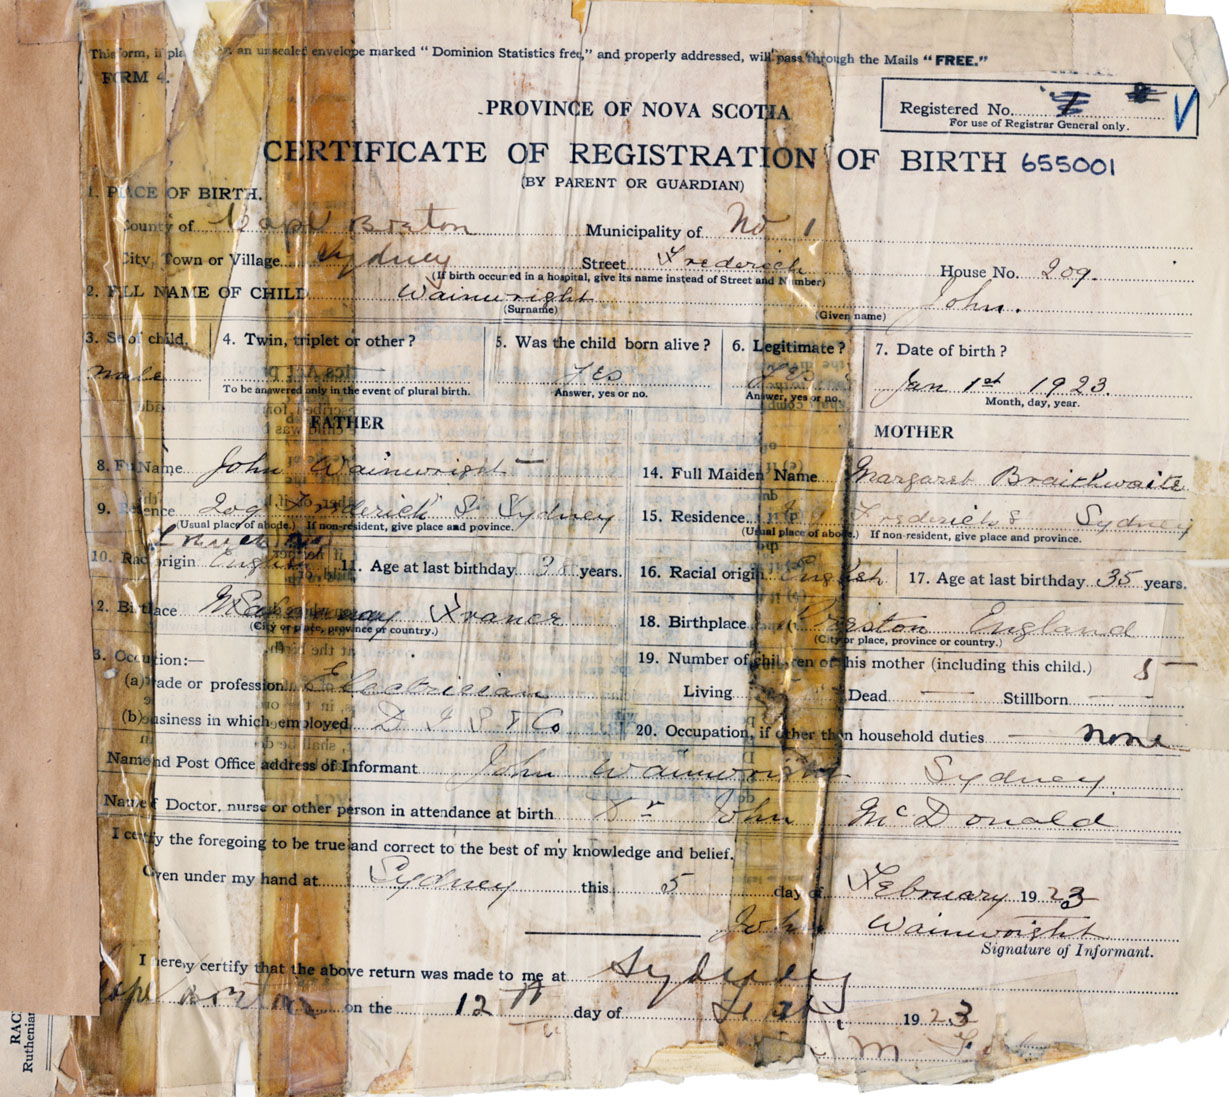 This form, if pla an unsealed envelope marked “Dominion Statistics free,” and properly addressed, will pass through the Mails “FREE.”
FORM 4.
PROVINCE OF NOVA SCOTIA
Registered No.
For use of Registrar General only.
CERTIFICATE OF REGISTRATION OF BIRTH 655001
(BY PARENT OR GUARDIAN)
1. PLACE OF BIRTH.
County of Cape Breton Municipality of No 1
City, Town or Village Sydney Street Frederick House No. 209.
(If birth occured in a hospital, give its name instead of Street and Number)
2. FULL NAME OF CHILD Wainwright John.
(Surname) (Given name)
3. Sex of child. 4. Twin, triplet or other? 5. Was the child born alive? 6. Legitimate? 7. Date of birth?
male yes yes Jan 1st 1923.
To be answered only in the event of plural birth. Answer, yes or no. Answer, yes or no. Month, day, year.
FATHER MOTHER
8. Full Name John Wainwright 14. Full Maiden Name Margaret Braithwaite
9. Residence 209 Frederick St Sydney 15. Residence Frederick S Sydney
(Usual place of abode.) If non-resident, give place and povince. (Usual place of abode.) If non-resident, give place and province.
10. Racial origin English 11. Age at last birthday 38 years. 16. Racial origin English 17. Age at last birthday 35 years.
12. Birthplace France 18. Birthplace Preston England
(City or place, province or country.) (City or place, province or country.)
13. Occupation:— 19. Number of children of this mother (including this child.) 5
(a) Trade or profession Electrician Living Dead — Stillborn —
(b) Business in which employed D I S & Co 20. Occupation, if other than household duties — none
Name and Post Office address of Informant John Wainwright Sydney
Name of Doctor, nurse or other person in attendance at birth Dr John McDonald
I certify the foregoing to be true and correct to the best of my knowledge and belief.
Given under my hand at Sydney this 5 day of February 1923
John Wainwright
Signature of Informant.
I hereby certify that the above return was made to me at Sydney
Cape Breton on the 12th day of Feb. 1923
RAC
Ruthenian